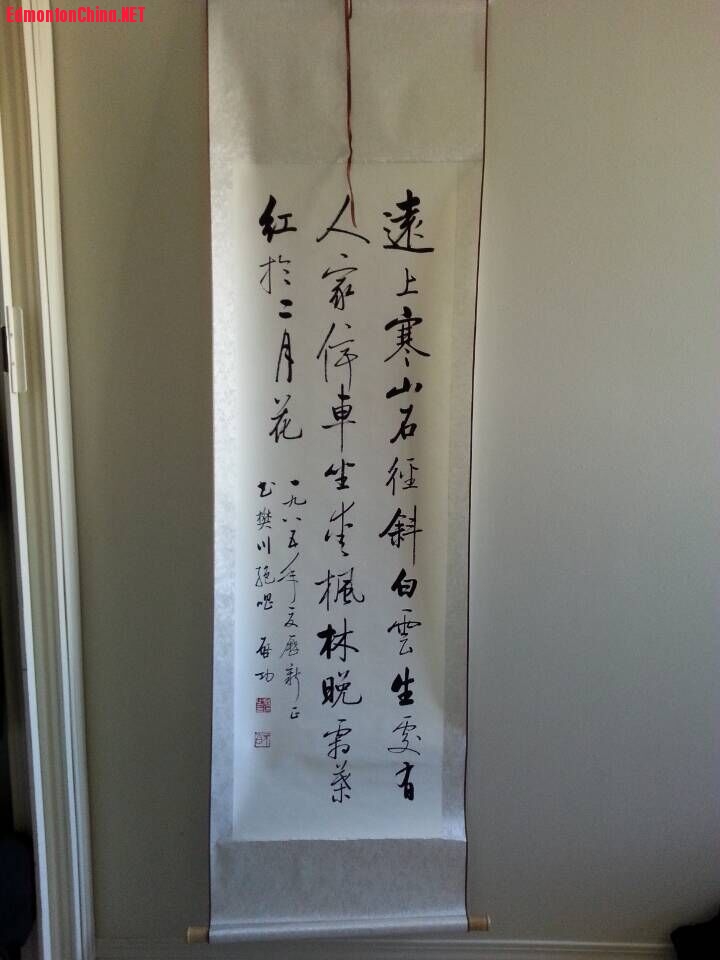 EdmontonChina.NET
遠上寒山石徑斜白雲生處有
人家停車坐愛楓林晚霜葉
紅於二月花
一九八五年夏曆新正
書樊川絕唱 啟功